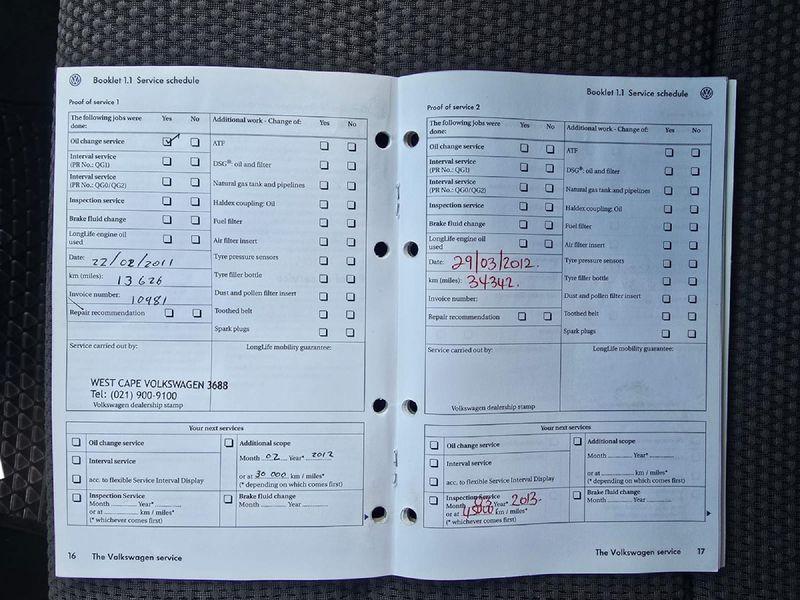 Booklet 1.1 Service schedule
Proof of service 1
The following jobs were done: Yes No
Additional work - Change of: Yes No
Oil change service
ATF
Interval service (PR No.: QG1)
DSG®: oil and filter
Interval service (PR No.: QG0/QG2)
Natural gas tank and pipelines
Inspection service
Haldex coupling: Oil
Brake fluid change
Fuel filter
LongLife engine oil used
Air filter insert
Date: 22/02/2011
Tyre pressure sensors
km (miles): 13 626
Tyre filler bottle
Invoice number: 10981
Dust and pollen filter insert
Repair recommendation
Toothed belt
Spark plugs
Service carried out by:
LongLife mobility guarantee:
WEST CAPE VOLKSWAGEN 3688
Tel: (021) 900-9100
Volkswagen dealership stamp
Your next services
Oil change service
Additional scope
Interval service
Month 02 Year* 2012
acc. to flexible Service Interval Display
or at 30 000 km / miles*
(* depending on which comes first)
Inspection Service
Brake fluid change
Month Year*
Month Year
or at km / miles*
(* whichever comes first)
16 The Volkswagen service
Booklet 1.1 Service schedule
Proof of service 2
The following jobs were done: Yes No
Additional work - Change of: Yes No
Oil change service
ATF
Interval service (PR No.: QG1)
DSG®: oil and filter
Interval service (PR No.: QG0/QG2)
Natural gas tank and pipelines
Inspection service
Haldex coupling: Oil
Brake fluid change
Fuel filter
LongLife engine oil used
Air filter insert
Date: 29/03/2012.
Tyre pressure sensors
km (miles): 34342.
Tyre filler bottle
Invoice number:
Dust and pollen filter insert
Repair recommendation
Toothed belt
Spark plugs
Service carried out by:
LongLife mobility guarantee:
Volkswagen dealership stamp
Your next services
Oil change service
Additional scope
Interval service
Month Year*
acc. to flexible Service Interval Display
or at km / miles*
(* depending on which comes first)
Inspection Service
Brake fluid change
Month 03 Year* 2013.
Month Year
or at km / miles*
(* whichever comes first)
The Volkswagen service 17